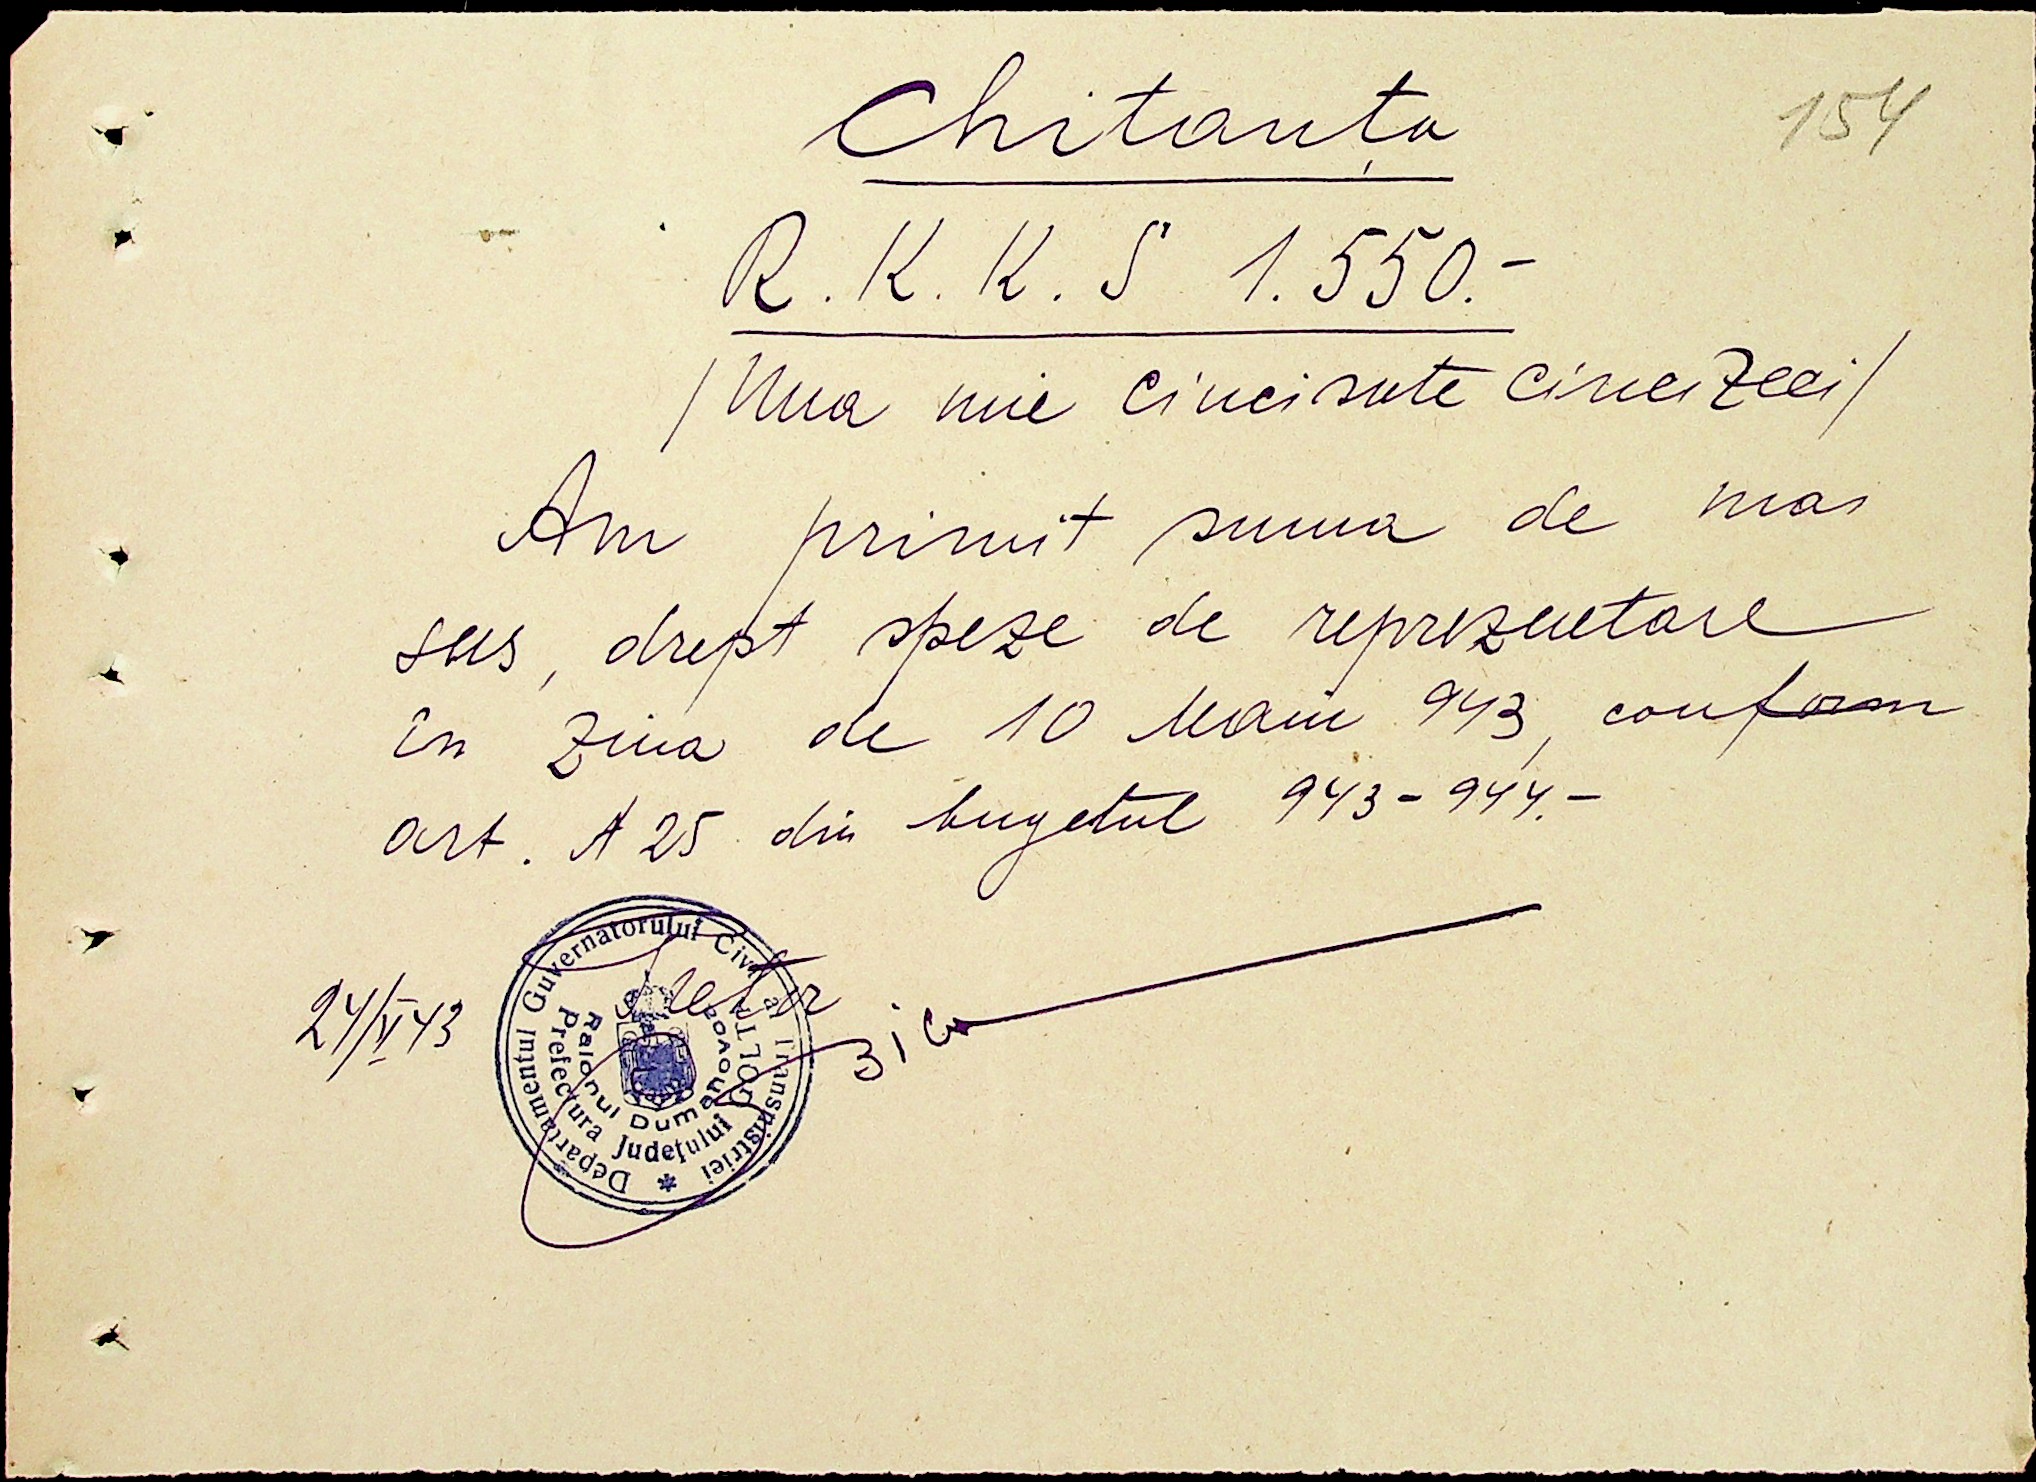 154
Chitanța
R. K. K. S 1.550.-
/Una mie cincisute cincizeci/
Am primit suma de mai
sus, drept speze de reprezentare
în ziua de 10 Maiu 943, conform
art. A 25 din bugetul 943-944.-
24/VI 43
Departamentul Guvernatorului Civil al Transnistriei
Prefectura Județului GOLTA
Raionul Dumanovca